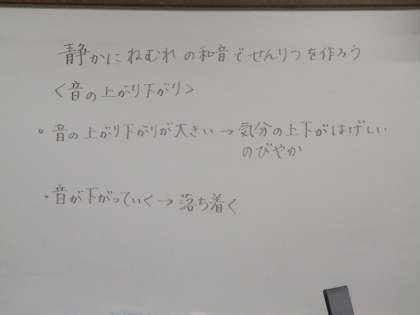 静かにねむれの和音でせんりつを作ろう
〈音の上がり下がり〉
・音の上がり下がりが大きい→気分の上下がはげしい
のびやか
・音が下がっていく→落ち着く